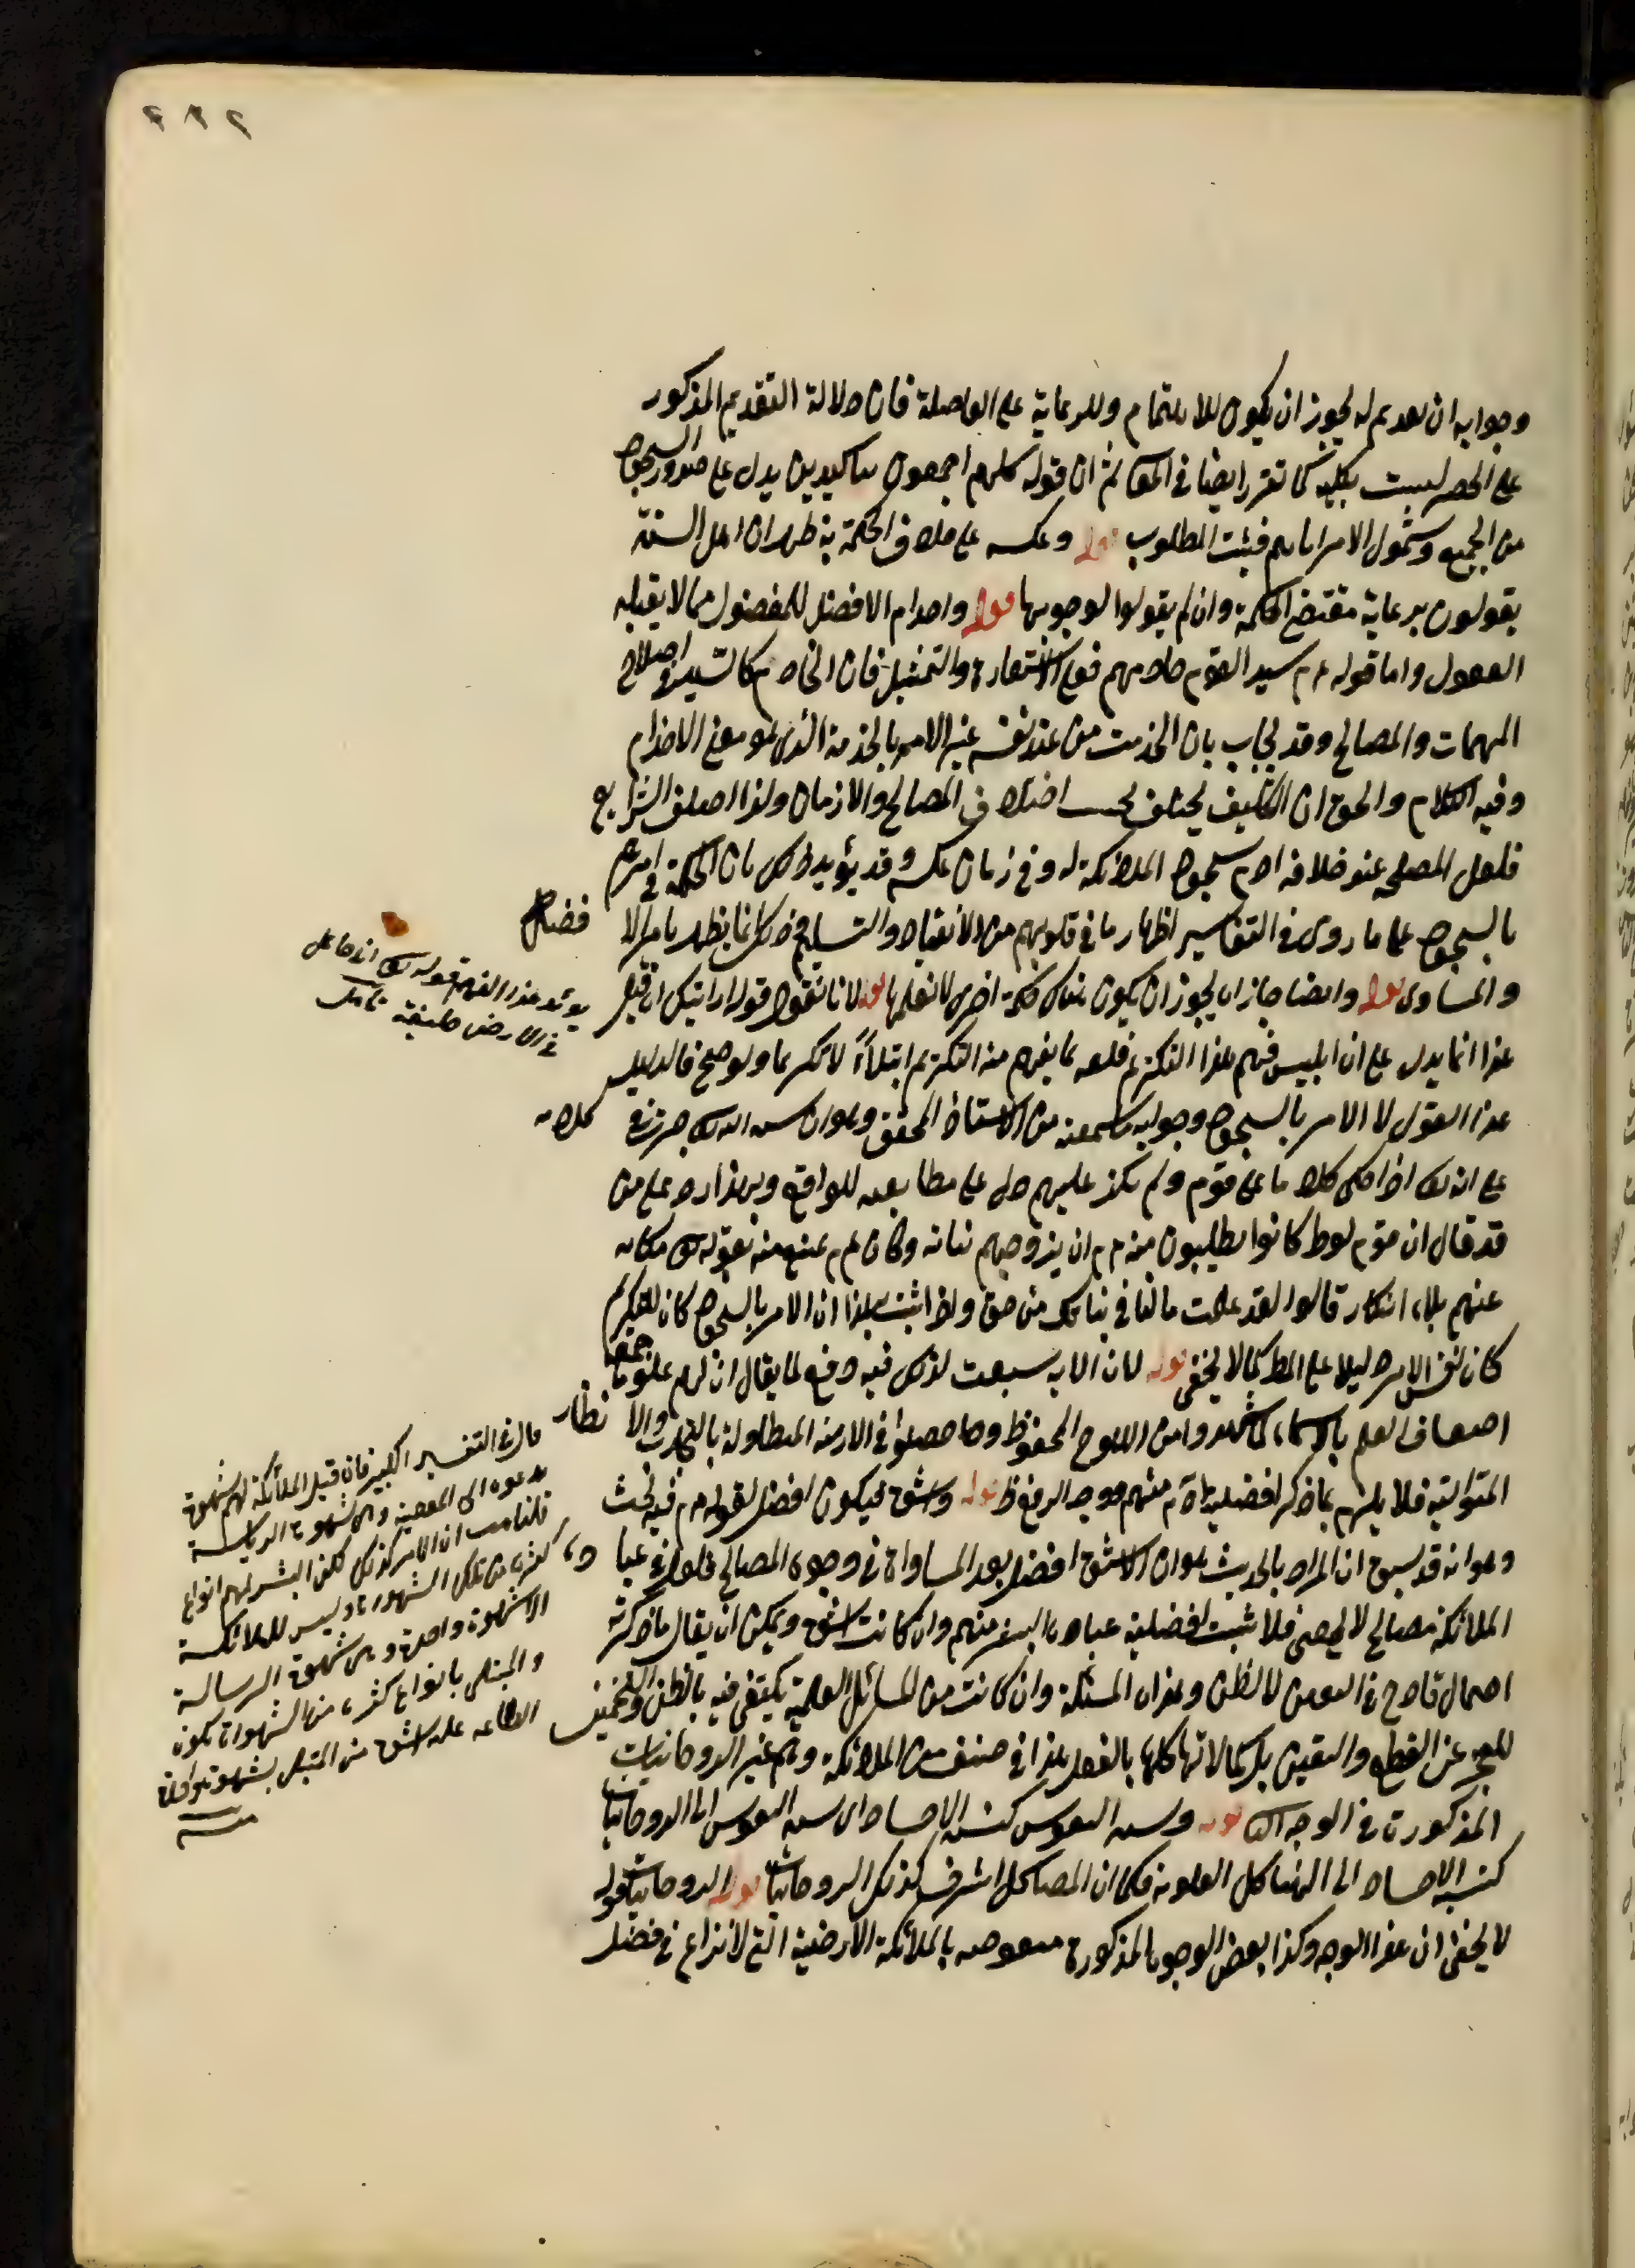 وجوابه ان تقديم له يجوز ان يكون للاهتمام وللرعاية على الفاصلة فان دلالة التقديم المذكور
على الحصر ليست بكلية كما تقرر ايضا في المعاني ثم ان قوله كلهم اجمعون بتأكيدين يدل على صدور السجود
من الجميع وشمول الامر اياهم فيثبت المطلوب قوله وعكسه على خلاف الحكمة فيه ظهر ان اهل السنة
يقولون برعاية مقتضى الحكمة وان لم يقولوا لوجوبها قوله واخدام الافضل للمفضول مما لا يقبله
العقول واما قوله عم سيد القوم خادمهم فعلى الاستعارة والتمثيل فان الخادم كالسيد في اصلاح
المهمات والمصالح وقد يجاب بان الخدمت من عند نفسه غير الامر بالخدمة الذي هو معنى الاخدام
وفيه الكلام والحق ان التكليف يختلف بحسب اختلاف المصالح والازمان ولذا اختلف الشرايع
فلعل المصلحة عند خلافه ادم سجود الملائكة له وفي زمان عكسه وقد يؤيد ذلك بان الحكمة في امرهم
بالسجود على ما روى في التفاسير اظهار ما في قلوبهم من الانقياد والتسليم وذلك انما يظهر بامر الا فضل
والمساوى قوله وايضا جاز ان يجوز ان يكون هناك حكمة اخرى لا نعلمها قوله لانا نقول قوله ارايتك ان قيل
هذا انما يدل على ان ابليس فهم هذا التكريم فلعله مما يفهم منه التكريم ابتلاء لا تكريما ولو صح فالدليل
هذا القول لا الامر بالسجود وجوابه ما سمعته من الاستاذ المحقق وهو ان سنة الله تعالى جرت في كلامه
على انه تعالى اذا حكى كلاما عن قوم ولم ينكر عليهم دل على مطابقته للواقع وبهذا رد على من
قد قال ان قوم لوط كانوا يطلبون منه عم ان يزوجهم بناته وكان عم يمنع منه بقوله تعالى حكاية
عنهم بلا انكار قالوا لقد علمت ما لنا في بناتك من حق واذا ثبت بهذا ان الامر بالسجود كان للتكريم
كان نفس الامر دليلا على المط كما لا يخفى قوله لان الآية سيقت لذلك فيه دفع لما يقال ان لهم علوما جمة
اضعاف العلم بالاسماء، كما شاهدوا من اللوح المحفوظ وما حصلوا في الازمنة المتطاولة بالتجارب والا نظار
المتوالية فلا يلزم بما ذكر افضلية ادم منهم ووجه الدفع ظ قوله واشق فيكون افضل لقوله عم فيه بحث
وهو انه قد سبق ان المراد بالحديث هو ان الاشق افضل بعد المساواة في وجوه المصالح فلعل في عبا دة
الملائكة مصالح لا يحصى فلا تثبت افضلية عبادة البشر منهم وان كانت اشق ويمكن ان يقال ما ذكرته
احتمال قادح في اليقين لا الظن وهذه المسئلة وان كانت من المسائل العلمية يكتفى فيه بالظن والتخمين
للعجز عن القطع واليقين بل كمالاتها كلها بالفعل هذا في صنف من الملائكة وهم غير الروحانيات
المذكورة في الوجه الثاني قوله ونسبة النفوس كنسبة الاجساد اى نسبة النفوس الى الروحانيات
كنسبة الاجساد الى الهياكل العلوية فكما ان الهياكل اشرف كذلك الروحانيات قوله الروحانيات قوله
لا يخفى ان هذا الوجه وكذا بعض الوجوه المذكورة منقوضه بالملائكة الارضية التي لا نزاع في فضل
يؤيد هذا الفهم قوله تعالى اني جاعل
في الارض خليفة تأمل
قال في التفسير الكبير فان قيل الملائكة لهم شهوة
تدعوه الى المعصية وهى شهوة الرياسة
قلنا هب ان الامر كذلك لكن البشر لهم انواع
كثيرة من تلك الشهوات وليس للملائكة
الا شهوة واحدة وهى شهوة الرياسة
والمبتلى بانواع كثيرة من الشهوات يكون
الطاعة عليه اشق من المبتلى بشهوة واحدة
منه